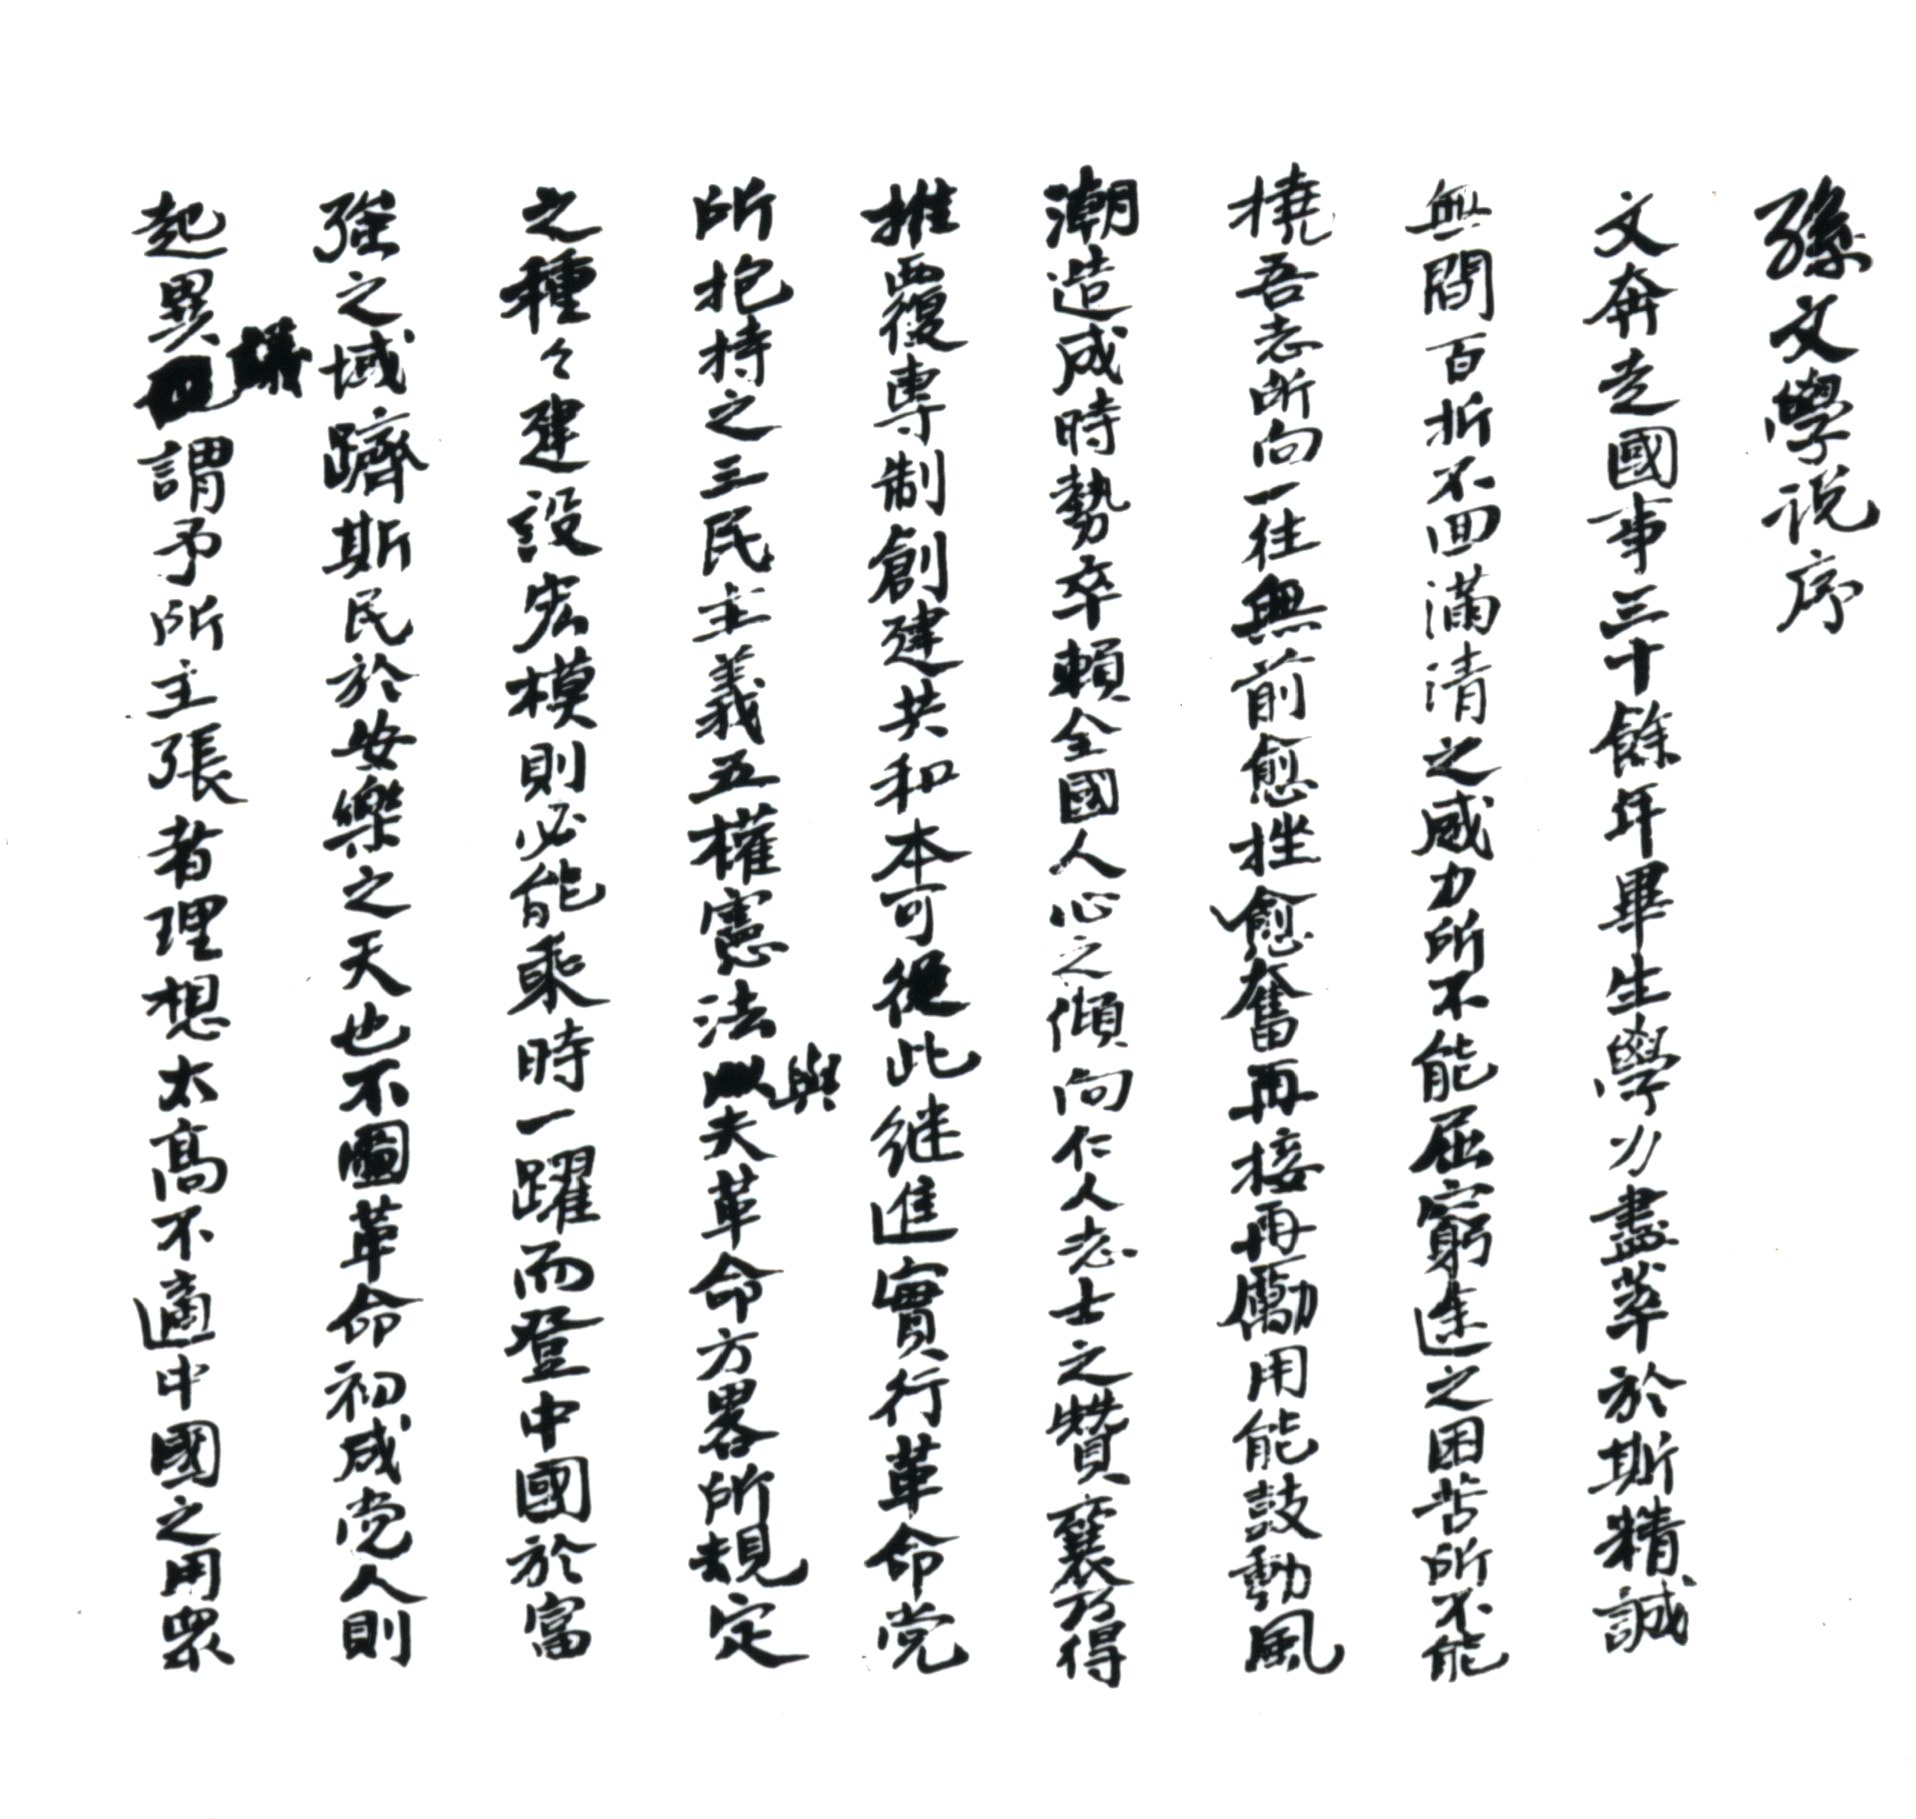 孫文學説序
文奔走國事三十餘年畢生學力盡萃於斯精誠
無間百折不回滿清之威力所不能屈窮途之困苦所不能
撓吾志所向一往無前愈挫愈奮再接再勵用能鼓動風
潮造成時勢卒賴全國人心之傾向仁人志士之贊襄乃得
推覆專制創建共和本可從此继進實行革命党
所抱持之三民主義五權憲法與夫革命方畧所規定
之種々建設宏模則必能乘時一躍而登中國於富
强之域躋斯民於安樂之天也不圖革命初成党人則
起異議謂予所主張者理想太高不適中國之用衆